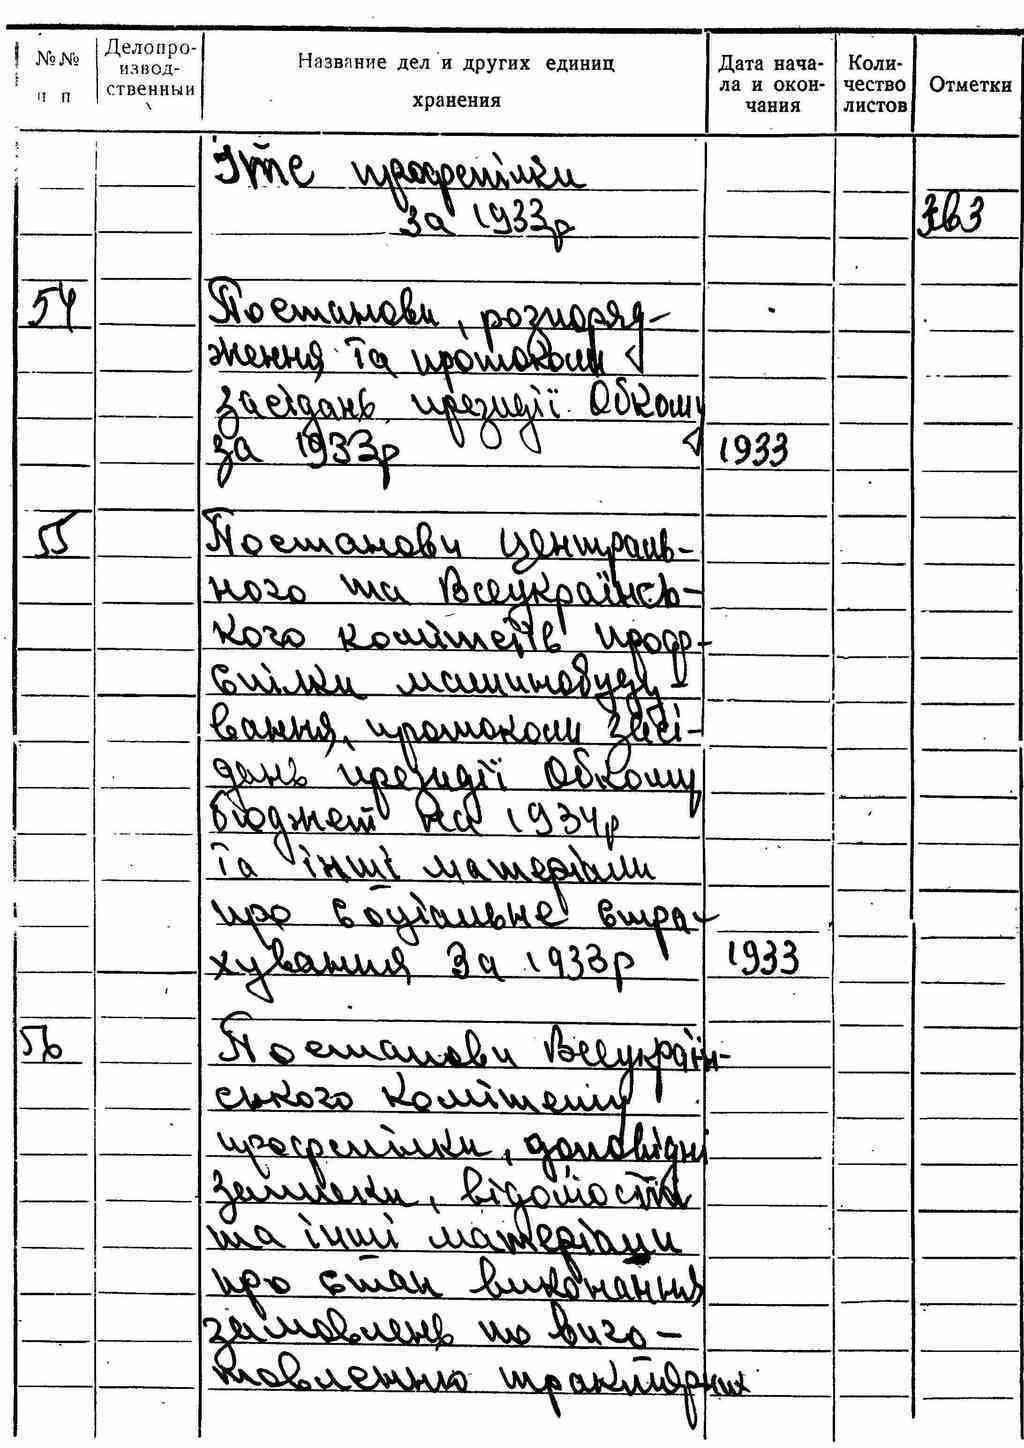 №№ п п
Делопроизвод-ственный
Название дел и других единиц хранения
Дата нача-ла и окон-чания
Коли-чество листов
Отметки
ІТС профспілки
за 1933р
54
Постанови, розпоряд-
ження та протоколи
засідань президії Обкому
за 1933р 1933
55
Постанови Централь-
ного та Всеукраїнсь-
кого комітетів проф-
спілки машинобуду-
вання, протоколи засі-
дань президії Обкому
бюджет на 1934р
та інші матеріали
про соціальне стра-
хування за 1933р 1933
56
Постанови Всеукраїн-
ського комітету
профспілки, доповідні
записки, відомості
та інші матеріали
про стан виконання
замовлень по виго-
товленню тракторних